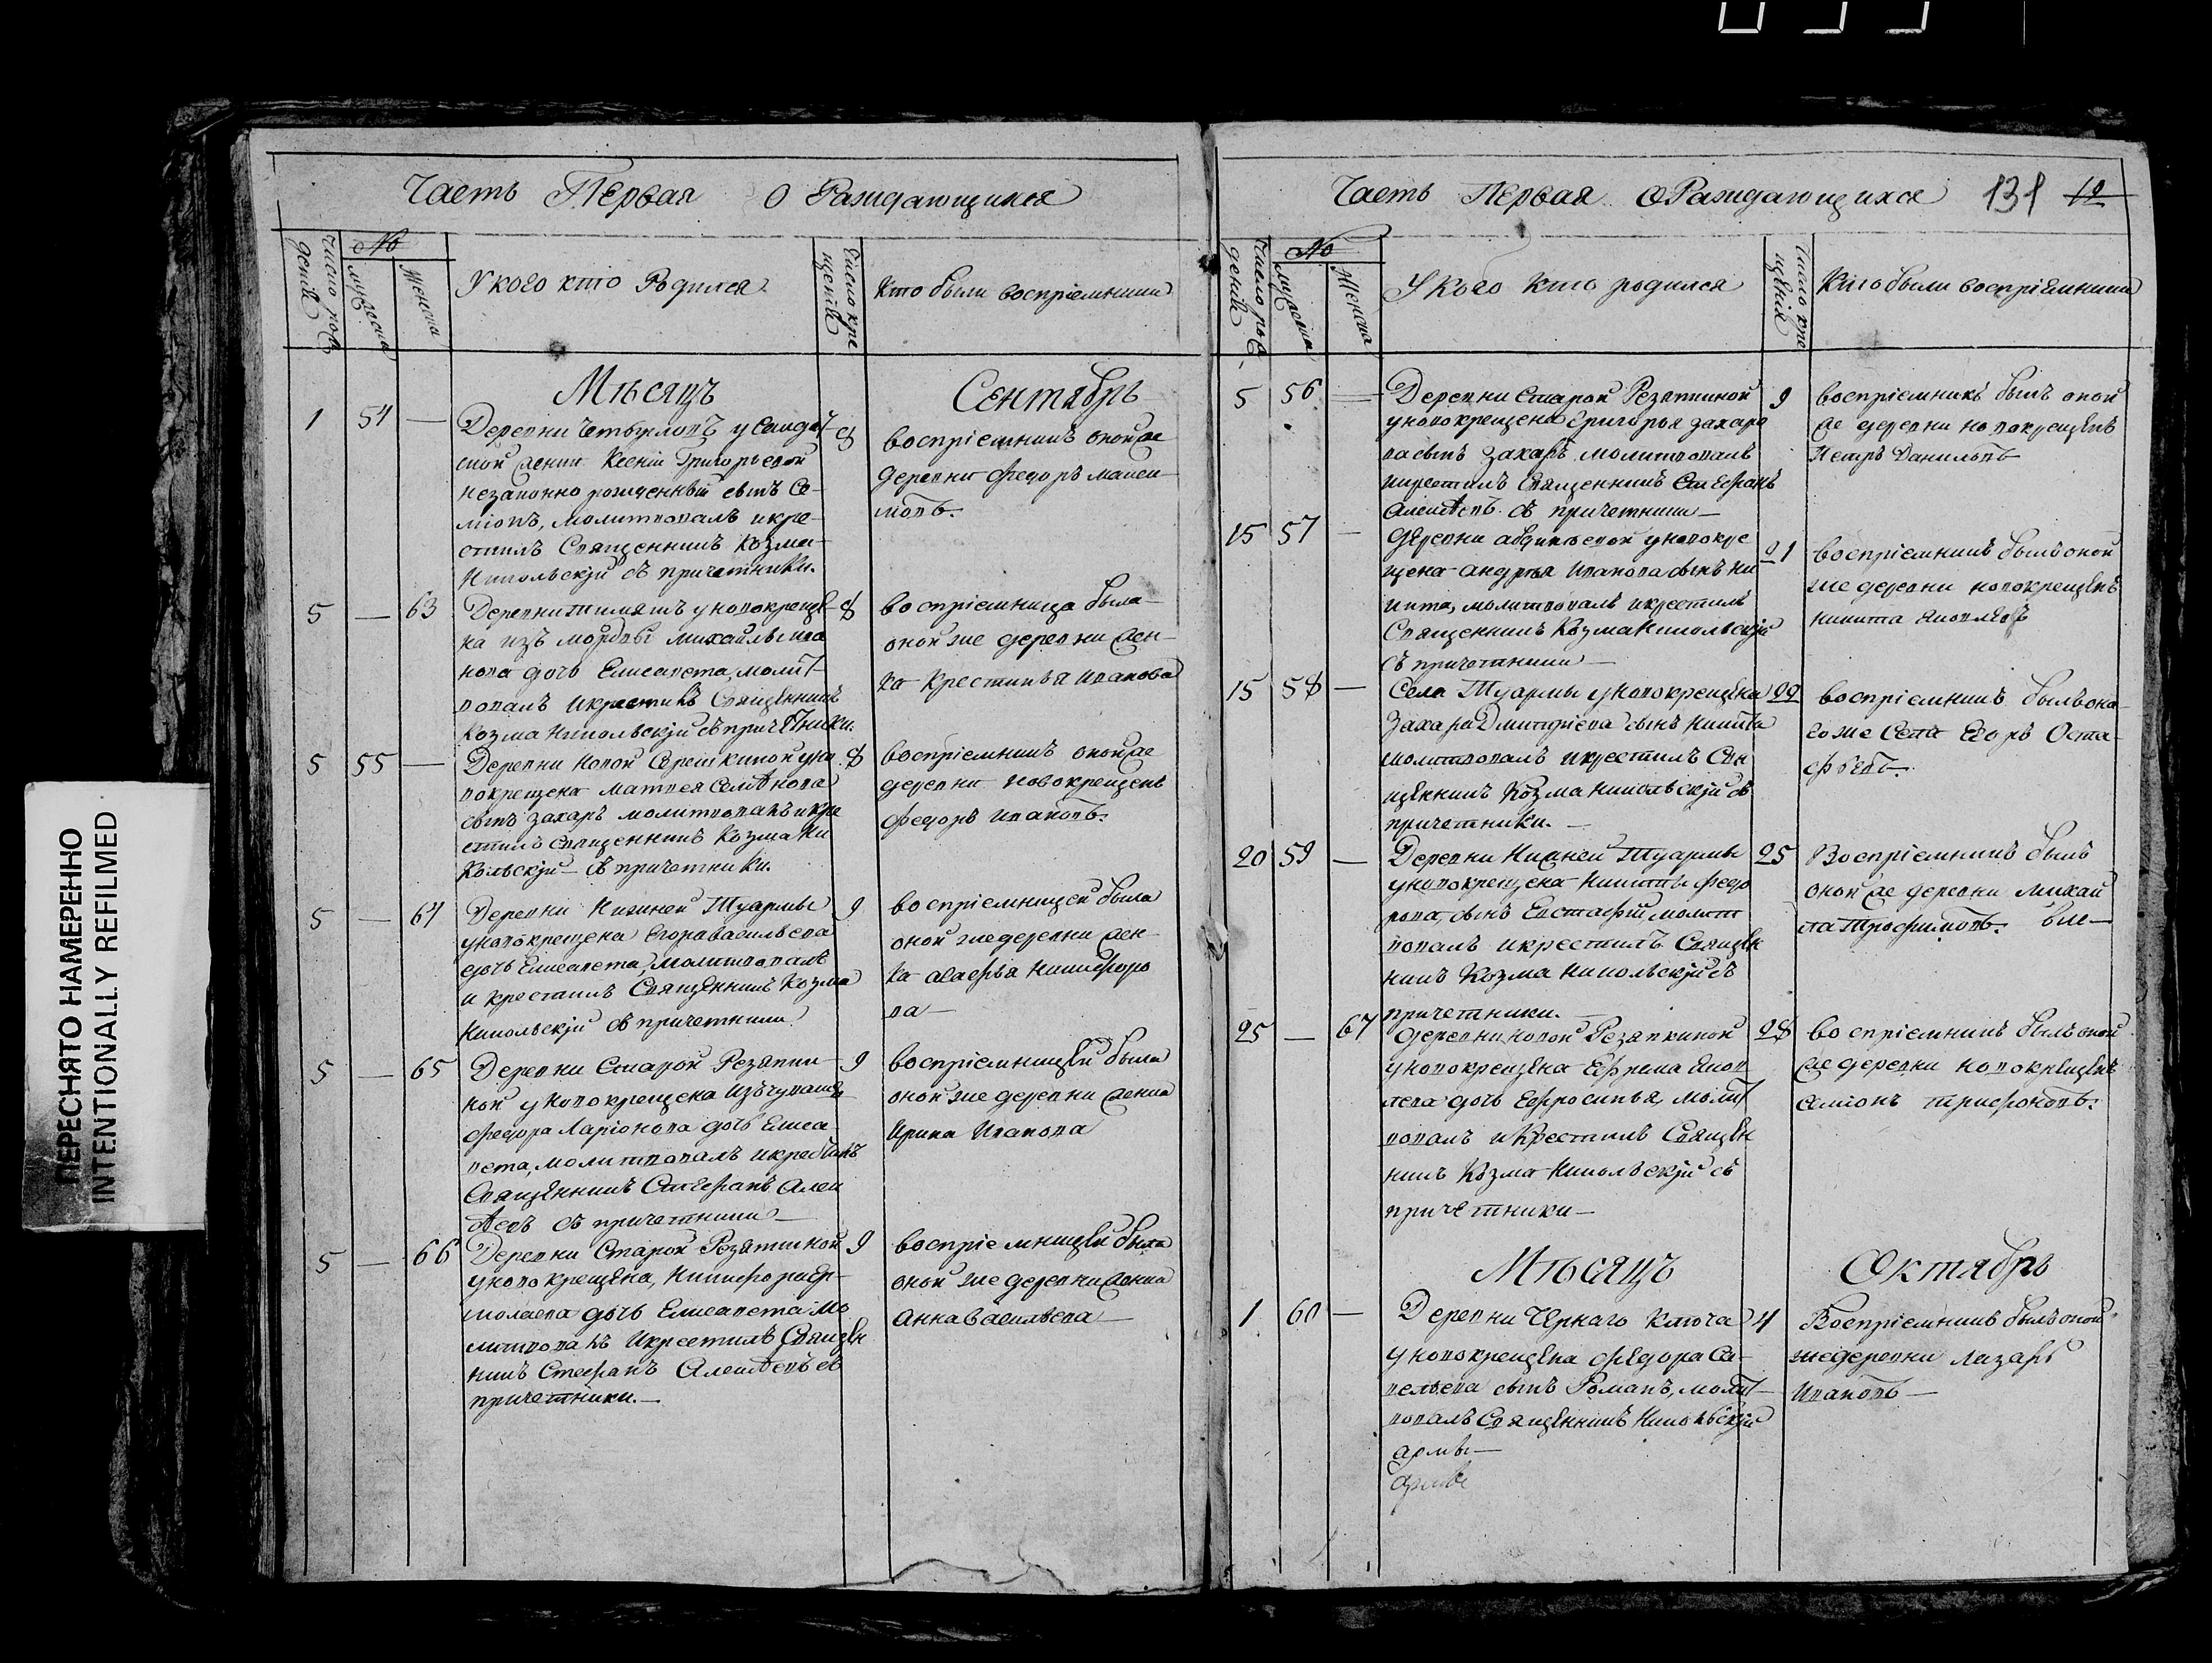 ПЕРЕСНЯТО НАМЕРЕННО
INTENTIONALLY REFILMED
Часть Первая О Раждающихся
Число рож
денія
№
мужеска
Женска
У кого кто Родился
Число кре
щенія
Кто были воспріемники
Мѣсяцъ Сентябрь
1 54 —
Деревни у Солдат
ской женки Ксеніи Григорьевой
незаконно рожденный сынъ Се-
міонъ, молитвовалъ и кре-
стилъ Священникъ Козма
Никольскій съ причетники.
8
воспріемникъ оной же
деревни Федоръ Макси-
мовъ.
5 — 63
Деревни Тимяшъ у новокреще-
на изъ мордвы Михайлы Ива
нова дочь Елисавета, молит
вовалъ и крестилъ Священникъ
Козма Никольскій съ причетники.
8
воспріемница была
оной же деревни жен-
ка Крестинья Иванова
5 55 —
Деревни Новой Серешкиной у но
вокрещена Матвея Семѣнова
сынъ Захаръ молитвовалъ и кре
стилъ Священникъ Козма Ни
кольскій съ причетники.
8
воспріемникъ оной же
деревни новокрещенъ
Федоръ Ивановъ.
5 — 64
Деревни Нижней Туармы
у новокрещена Егора Васильева
дочь Елисавета, молитвовалъ
и крестилъ Священникъ Козма
Никольскій съ причетники
9
воспріемницей была
оной же деревни жен-
ка Агафья Никифоро
ва —
5 — 65
Деревни Старой Резяпки-
ной у новокрещена изъ чувашъ
Федора Ларіонова дочь Елиса-
вета, молитвовалъ и крестилъ
Священникъ Стефанъ Алек
ѣевъ съ причетники —
9
воспріемницей была
оной же деревни женка
Ирина Иванова
5 — 66
Деревни Старой Резяпкиной
у новокрещена, Никифора Ер-
молаева дочь Елисавета мо
литвовалъ и крестилъ Священ
никъ Стефанъ Алексѣевъ съ
причетники. —
9
воспріемницей была
оной же деревни женка
Анна Васильева —
Часть Первая О Раждающихся 131 12
Число рож
денія
№
мужеска
Женска
У кого кто родился
Число кре
щенія
Кто были воспріемники
5 56 —
Деревни Старой Резяпкиной
у новокрещена Григорья Захаро
ва сынъ Захаръ молитвовалъ
и крестилъ Священникъ Стефанъ
Алексѣевъ съ причетники —
9
воспріемникъ былъ оной
же деревни новокрещенъ
Петръ Даниловъ
15 57 —
Деревни у новокре
щена Андрея Иванова сынъ Ни
кита, молитвовалъ и крестилъ
Священникъ Козма Никольскій
съ причетники —
21
воспріемникъ былъ оной
же деревни новокрещенъ
Никита Яковлевъ
15 58 —
Села Туармы у новокрещена
Захара Дмитріева сынъ Никита
молитвовалъ и крестилъ Свя
щенникъ Козма Никольскій съ
причетники. —
22
воспріемникъ былъ она
го же Села Егоръ Оста-
фьевъ.
20 59 —
Деревни Нижней Туармы
у новокрещена Никиты Федо
рова, сынъ Евстафій молит
вовалъ и крестилъ Священ
никъ Козма Никольскій съ
причетники. —
25
Воспріемникъ былъ
оной же деревни Михай
ла Трофимовъ.
25 — 67
Деревни Новой Резяпкиной
у новокрещена Ефрема Яков
лева дочь Ефросинья, молит
вовалъ и Крестилъ Священ
никъ Козма Никольскій съ
причетники —
28
воспріемникъ былъ оной
же деревни новокрещенъ
Семіонъ Трифоновъ.
Мѣсяцъ Октябрь
1 60 —
Деревни Чернаго Ключа
у новокрещена Федора Са-
вельева сынъ Романъ, молит
вовалъ Священникъ Никольскій
армы —
4
Воспріемникъ былъ оной
же деревни Лазарь
Ивановъ —